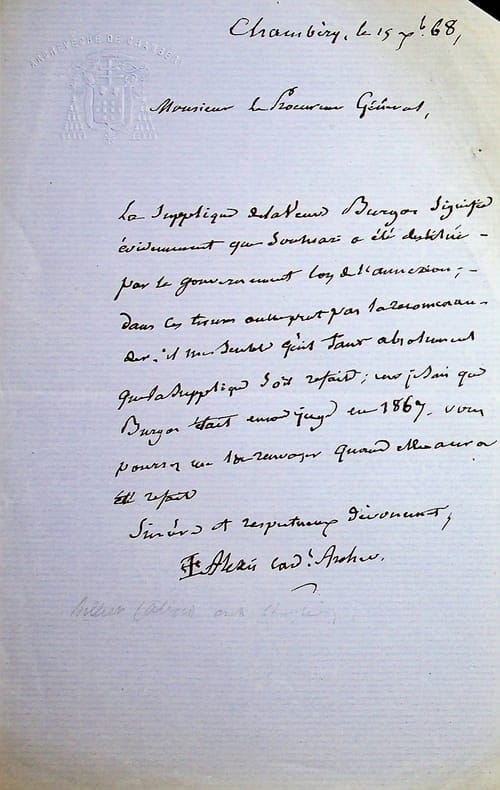 ARCHEVÊCHÉ DE CHAMBÉRY
Chambéry, le 15 Xb. 68,
Monsieur le Procureur Général,
La Supplique de la Veuve Burgos Signifie
évidemment que Son mari a été destitué
par le gouvernement lors de l'annexion; -
dans ces termes on ne peut pas la recomman-
der; il me Semble qu'il faut absolument
que la Supplique soit refaite; car je sais que
Burgos était encore juge en 1867. vous
pourrez me la renvoyer quand elle aura
été refaite
Sincère et respectueux dévouement,
Alexis card. Archev.